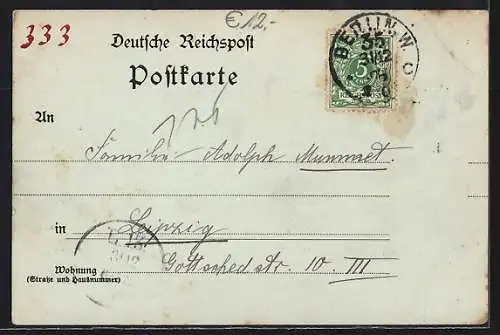 €12.-
333
Deutsche Reichspost
Postkarte
BERLIN.W
35
5
An
Familie Adolph Mummet.
in Leipzig
Wohnung
(Straße und Hausnummer)
Gottsched Str. 10. III